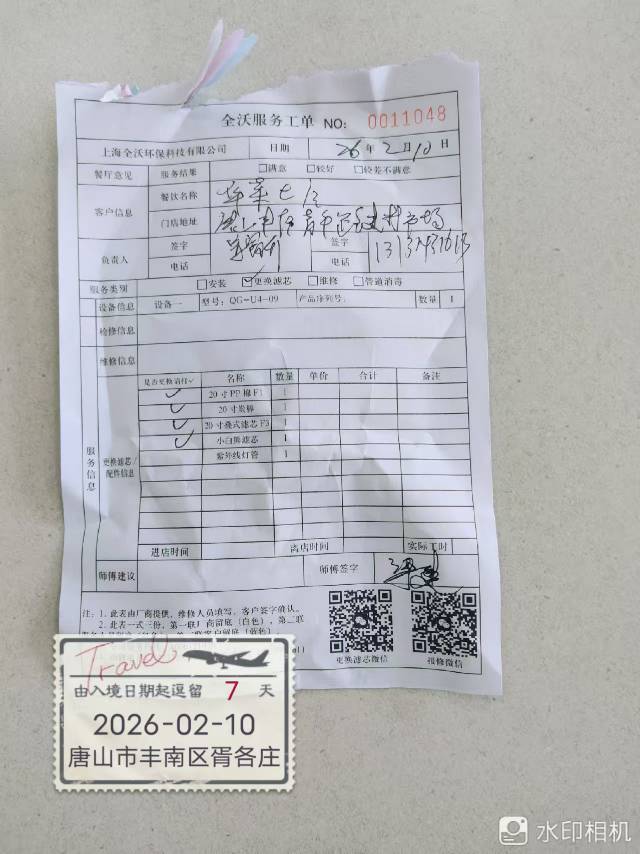 全沃服务工单 NO: 0011048
上海全沃环保科技有限公司 日期 26年2月10日
餐厅意见 服务结果 □满意 □较好 □较差不满意
客户信息 餐饮名称
门店地址
负责人 签字 签字
电话 电话
服务类别 □安装 ☑更换滤芯 □维修 □管道消毒
服务信息
设备信息 设备一 型号: QG-U4-09 产品序列号: 数量 1
检修信息
维修信息
更换滤芯/配件信息
是否更换请打✓ 名称 数量 单价 合计 备注
✓ 20寸PP棉F1 1
✓ 20寸炭棒 1
✓ 20寸叠式滤芯F3 1
✓ 小白奥滤芯 1
紫外线灯管 1
进店时间 离店时间 实际工时
师傅建议 师傅签字
注: 1. 此表由厂商提供, 维修人员填写, 客户签字确认。
2. 此表一式三份, 第一联厂商留底(白色), 第二联
更换滤芯微信 报修微信
Travel
由入境日期起逗留 7 天
2026-02-10
唐山市丰南区胥各庄
水印相机